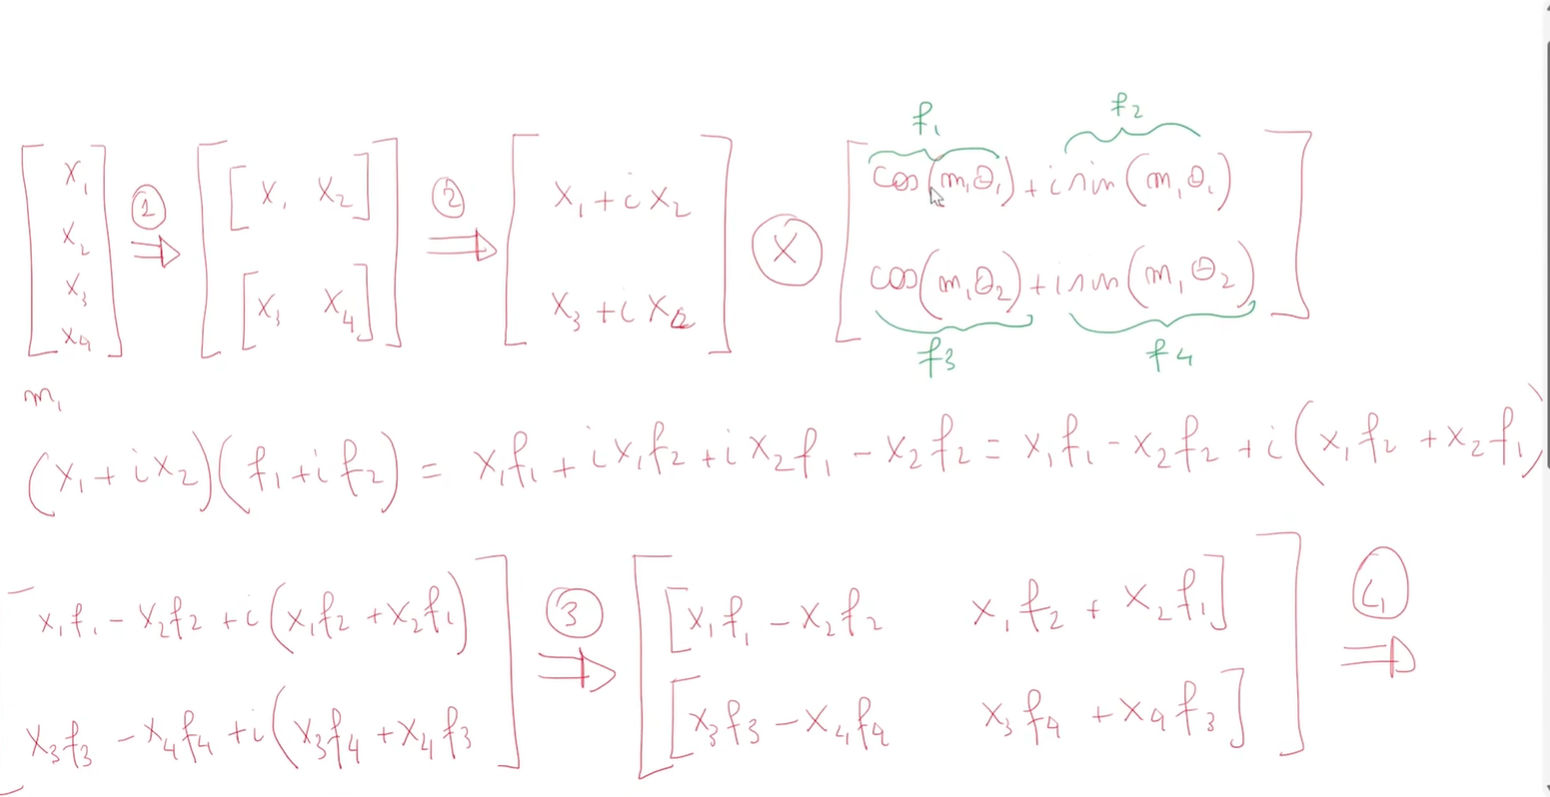 f₁ f₂
[x₁ x₂ x₃ x₄] ① ⇒ [[x₁ x₂] [x₃ x₄]] ② ⇒ [x₁ + i x₂ x₃ + i x₂] ⓧ [cos(m₁θ₁) + i sin(m₁θ₁) cos(m₁θ₂) + i sin(m₁θ₂)]
f3 f4
m₁
(x₁ + ix₂)(f₁ + if₂) = x₁f₁ + ix₁f₂ + ix₂f₁ - x₂f₂ = x₁f₁ - x₂f₂ + i(x₁f₂ + x₂f₁)
[x₁f₁ - x₂f₂ + i(x₁f₂ + x₂f₁) ③ ⇒ [[x₁f₁ - x₂f₂ x₁f₂ + x₂f₁] ④ ⇒
x₃f₃ - x₄f₄ + i(x₃f₄ + x₄f₃] [x₃f₃ - x₄f₄ x₃f₄ + x₄f₃]]